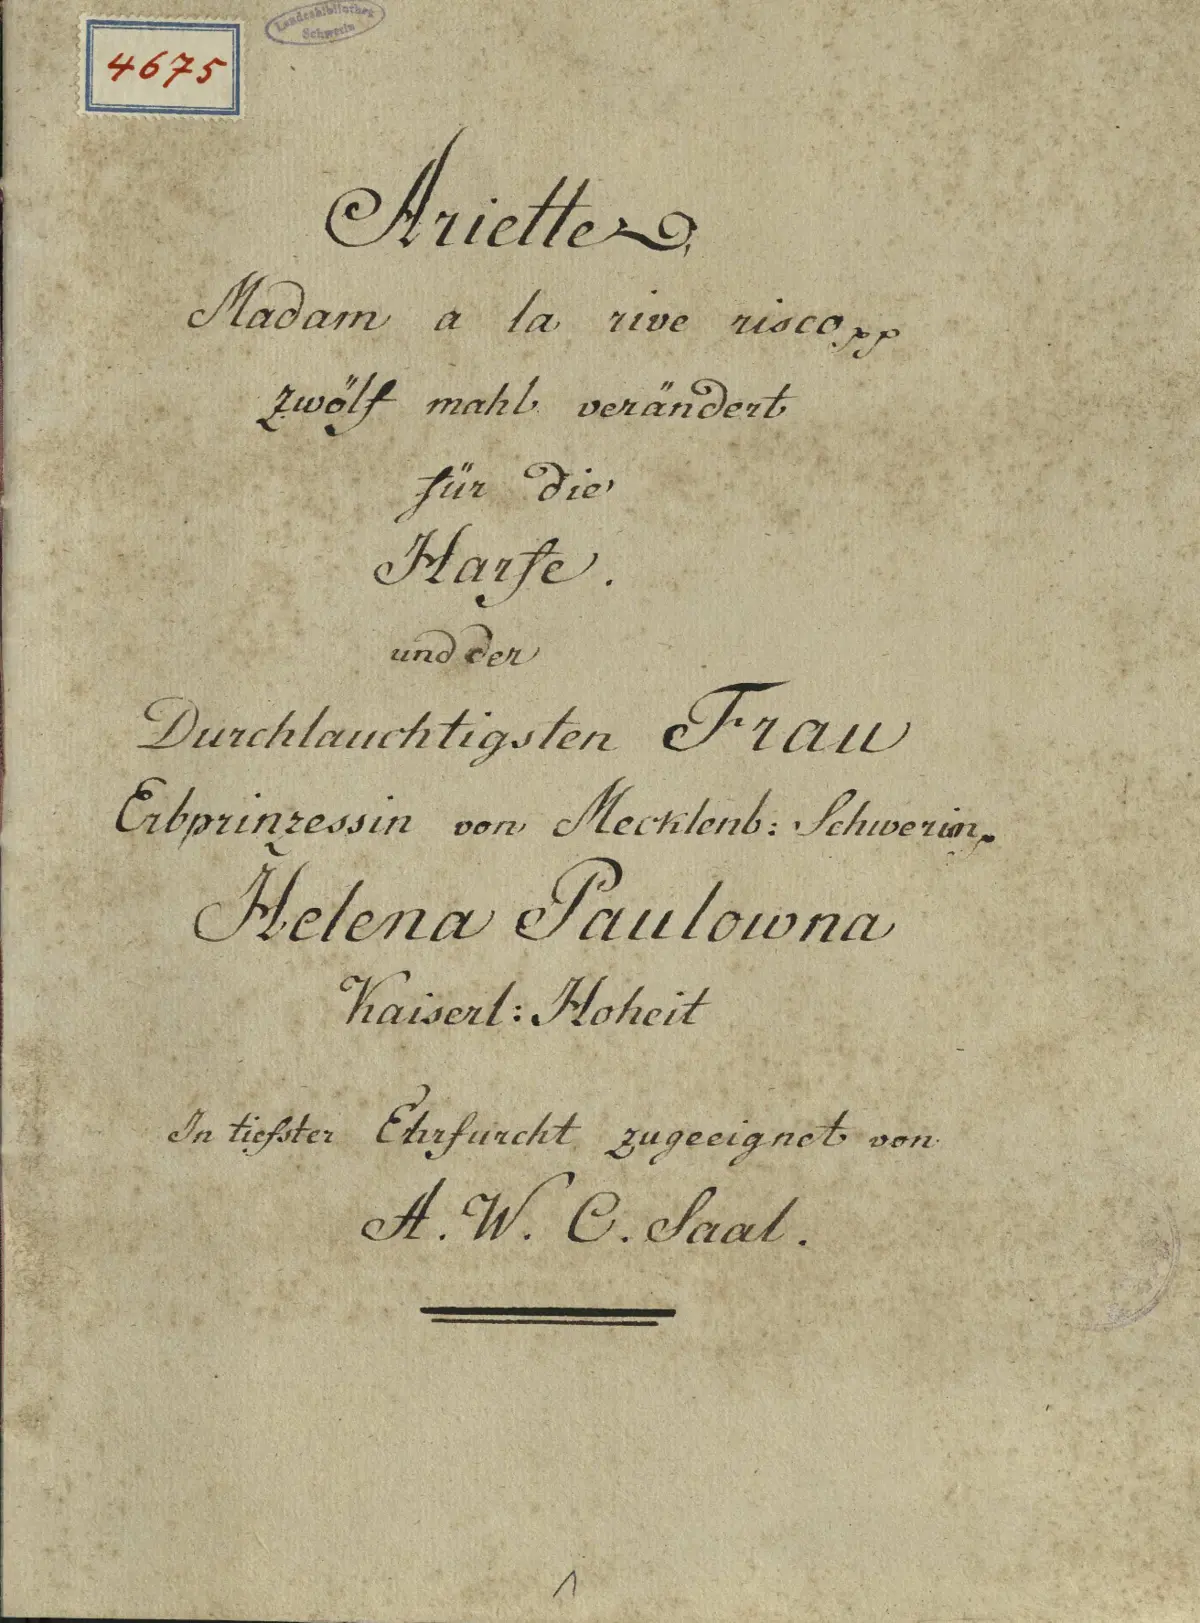 Landesbibliothek
Schwerin
4675
Ariette
Madam a la rive risco pp
zwölf mahl verändert
für die
Harfe.
und der
Durchlauchtigsten Frau
Erbprinzessin von Mecklenb: Schwerin,
Helena Paulowna
Kaiserl: Hoheit
In tiefster Ehrfurcht zugeeignet von
A. W. C. Saal.
1